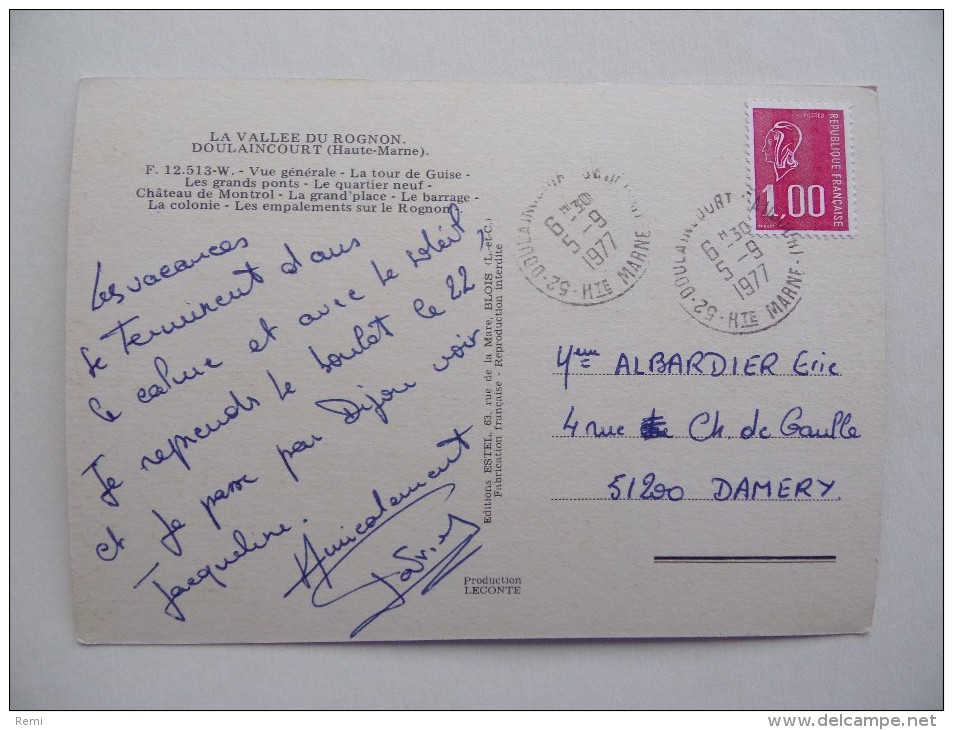 LA VALLEE DU ROGNON.
DOULAINCOURT (Haute-Marne).
F. 12.513-W. - Vue générale - La tour de Guise -
Les grands ponts - Le quartier neuf -
Château de Montrol - La grand'place - Le barrage -
La colonie - Les empalements sur le Rognon.
Les vacances
se terminent dans
le calme et avec le soleil,
Je reprends le boulot le 22,
et je passe par Dijon voir
Jacqueline.
Amicalement
Editions ESTEL, 63, rue de la Mare, BLOIS (L.-et-C.)
Fabrication française - Reproduction interdite
Production
LECONTE
52-DOULAINCOURT
6 H30
5-9
1977
HTE MARNE
52-DOULAINCOURT
6 H30
5-9
1977
HTE MARNE
POSTES
REPUBLIQUE FRANÇAISE
1,00
Mme ALBARDIER Eric
4 rue Ch. de Gaulle
51200 DAMERY.
Remi
http://www.delcampe.net